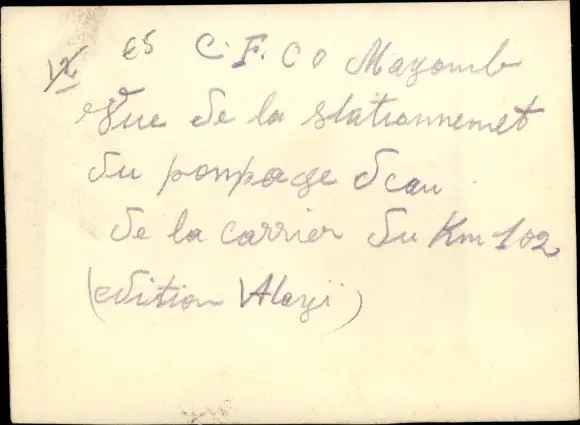 12 65 C.F.CO Mayomb
Vue de la stationnemet
du pompage deau
de la carrier du Km 102
(edition Alazi)